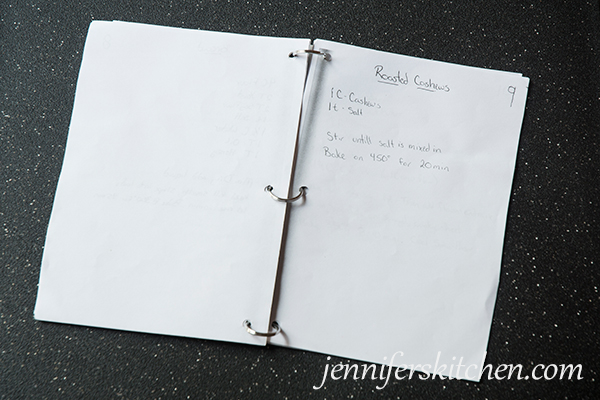 Roasted Cashews
9
1 C - Cashews
1 t - Salt
Stir untill salt is mixed in
Bake on 450° for 20 min
jenniferskitchen.com